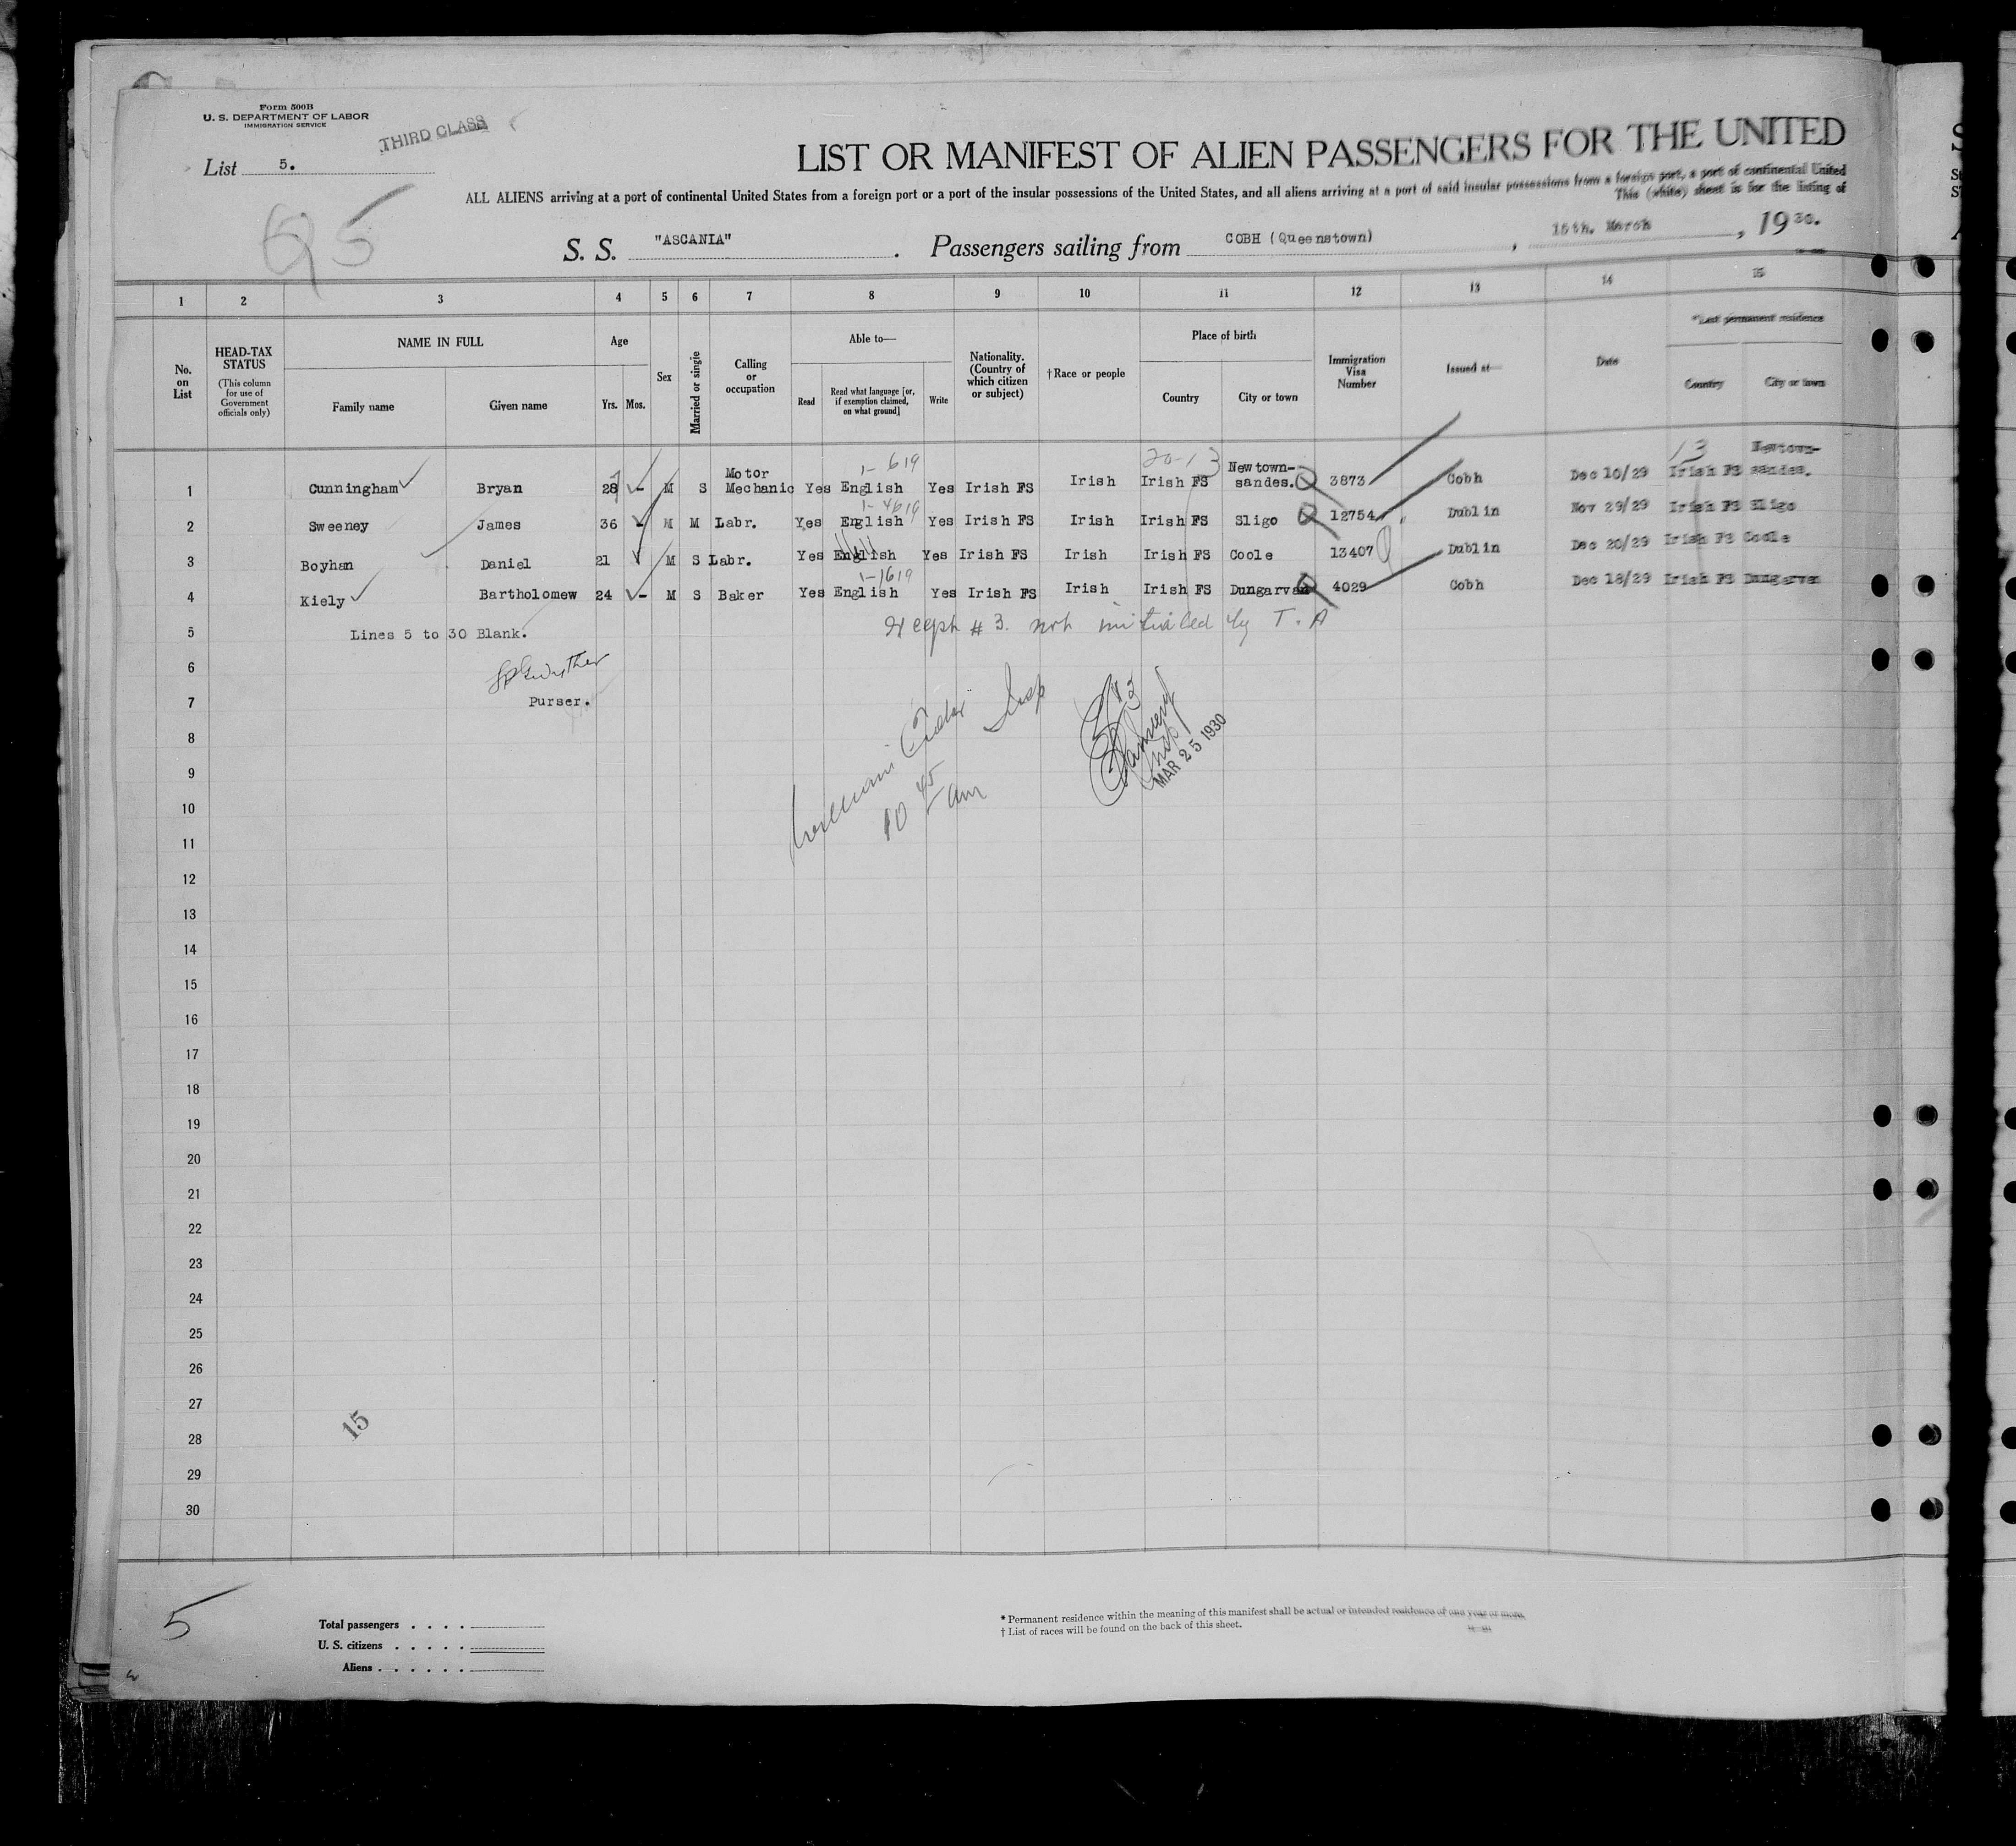 Form 500B
U. S. DEPARTMENT OF LABOR
IMMIGRATION SERVICE
THIRD CLASS
List 5.
95
LIST OR MANIFEST OF ALIEN PASSENGERS FOR THE UNITED
ALL ALIENS arriving at a port of continental United States from a foreign port or a port of the insular possessions of the United States, and all aliens arriving at a port of said insular possessions from a foreign port, a port of continental United
This (white) sheet is for the listing of
S. S. "ASCANIA". Passengers sailing from COBH (Queenstown), 15th. March, 1930.
1 2 3 4 5 6 7 8 9 10 11 12 13 14 15
No. on List
HEAD-TAX STATUS
(This column for use of Government officials only)
NAME IN FULL
Family name Given name
Age
Yrs. Mos.
Sex
Married or single
Calling or occupation
Able to—
Read
Read what language [or, if exemption claimed, on what ground]
Write
Nationality. (Country of which citizen or subject)
†Race or people
Place of birth
Country City or town
Immigration Visa Number
Issued at—
Date
*Last permanent residence
Country City or town
1-619 20-13 13
1 Cunningham Bryan 28 - M S Motor Mechanic Yes English Yes Irish FS Irish Irish FS Newtown-sandes. 3873 Cobh Dec 10/29 Irish FS Newtown-sandes.
1-4619
2 Sweeney James 36 - M M Labr. Yes English Yes Irish FS Irish Irish FS Sligo 12754 Dublin Nov 29/29 Irish FS Sligo
3 Boyhan Daniel 21 M S Labr. Yes English Yes Irish FS Irish Irish FS Coole 13407 Dublin Dec 20/29 Irish FS Coole
1-1619
4 Kiely Bartholomew 24 - M S Baker Yes English Yes Irish FS Irish Irish FS Dungarvan 4029 Cobh Dec 18/29 Irish FS Dungarvan
5 Lines 5 to 30 Blank.
# 3. not initialed by T. A
6
7 Purser.
8
William Insp
10 45 am
MAR 25 1930
9
10
11
12
13
14
15
16
17
18
19
20
21
22
23
24
25
26
27
28
15
29
30
5
Total passengers . . . .
U. S. citizens . . . . .
Aliens . . . . . .
* Permanent residence within the meaning of this manifest shall be actual or intended residence of one year or more.
† List of races will be found on the back of this sheet.